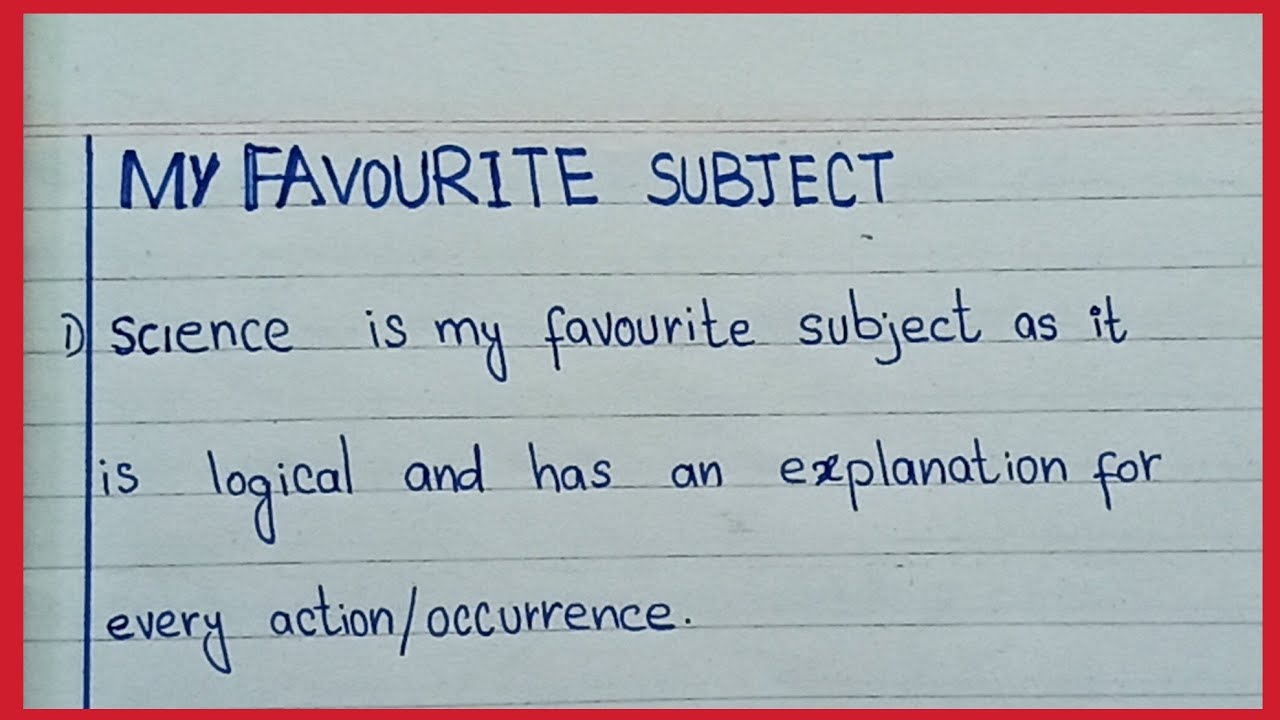 MY FAVOURITE SUBJECT
1) Science is my favourite subject as it
is logical and has an explanation for
every action/occurrence.